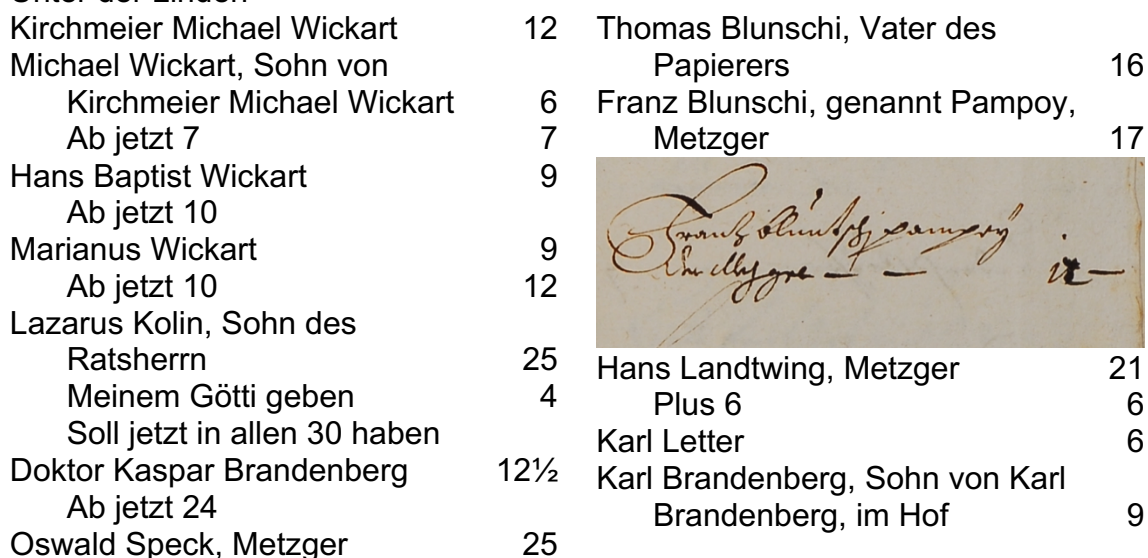 Unter der Linden
Kirchmeier Michael Wickart 12
Michael Wickart, Sohn von
Kirchmeier Michael Wickart 6
Ab jetzt 7 7
Hans Baptist Wickart 9
Ab jetzt 10
Marianus Wickart 9
Ab jetzt 10 12
Lazarus Kolin, Sohn des
Ratsherrn 25
Meinem Götti geben 4
Soll jetzt in allen 30 haben
Doktor Kaspar Brandenberg 12½
Ab jetzt 24
Oswald Speck, Metzger 25
Thomas Blunschi, Vater des
Papierers 16
Franz Blunschi, genannt Pampoy,
Metzger 17
Frantz bluntschj pampey
der Metzger
Hans Landtwing, Metzger 21
Plus 6 6
Karl Letter 6
Karl Brandenberg, Sohn von Karl
Brandenberg, im Hof 9